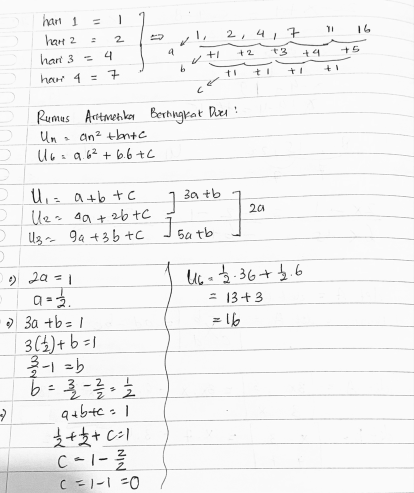 hari 1 = 1
hari 2 = 2
hari 3 = 4
hari 4 = 7
⇒
a 1, 2, 4, 7 11 16
b +1 +2 +3 +4 +5
c +1 +1 +1 +1
Rumus Aritmatika Bertingkat Dua :
Un = an² + bn + c
U6 = a.6² + b.6 + c
U1 = a + b + c ] 3a + b
U2 = 4a + 2b + c ] 2a
U3 = 9a + 3b + c ] 5a + b
2a = 1
a = 1/2.
3a + b = 1
3(1/2) + b = 1
3/2 - 1 = b
b = 3/2 - 2/2 = 1/2
a + b + c = 1
1/2 + 1/2 + c = 1
c = 1 - 2/2
c = 1 - 1 = 0
U6 = 1/2 . 36 + 1/2 . 6
= 13 + 3
= 16